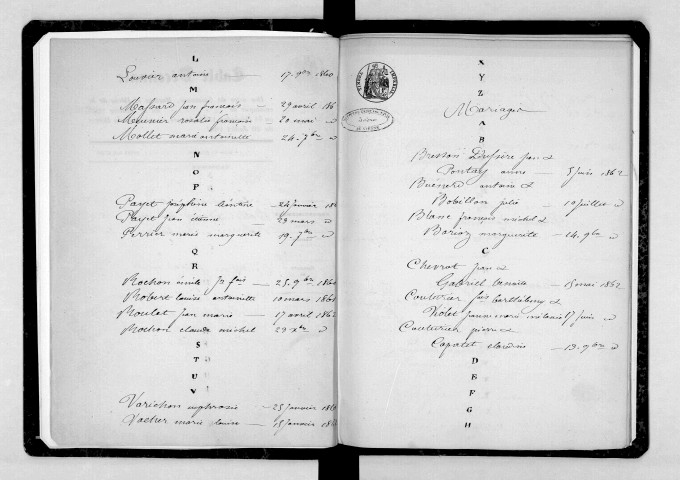 L
Louvier antoine — 17 9bre 1860
M
Massard jean françois — 29 avril 186
Meunier rosalie françoise 20 mai d
Mollet marie antoinette 24 7bre
N
O
P
Payet joséphine 24 janvier 18
Payet jean étienne 29 mars d
Perrier marie marguerite 19 7bre d
Q R
Rochon emile jh fois — 25 9bre 186
Robert louise antoinette 10 mars 186
Roulat jean marie — 17 avril 1862
Rochon claude michel — 29 Xbre d
S
T
U
V
Varichon euphrosie — 25 janvier 186
Vacher marie louise — 15 janvier 186
X
Y
Z
Mariages
A
B
jean &
Pontay anne — 5 juin 1862
antoine &
Bobillon julie — 10 juillet d
Blanc françois michel &
marguerite — 14 9bre d
C
Chevrot jean &
Gabriel benoite — 15 mai 1862
Couturier fois barthélemy &
Violet jeanne marie mélanie 17 juin d
Couturier pierre &
Capotet claudine — 13 9bre d
D
E
F
G
H